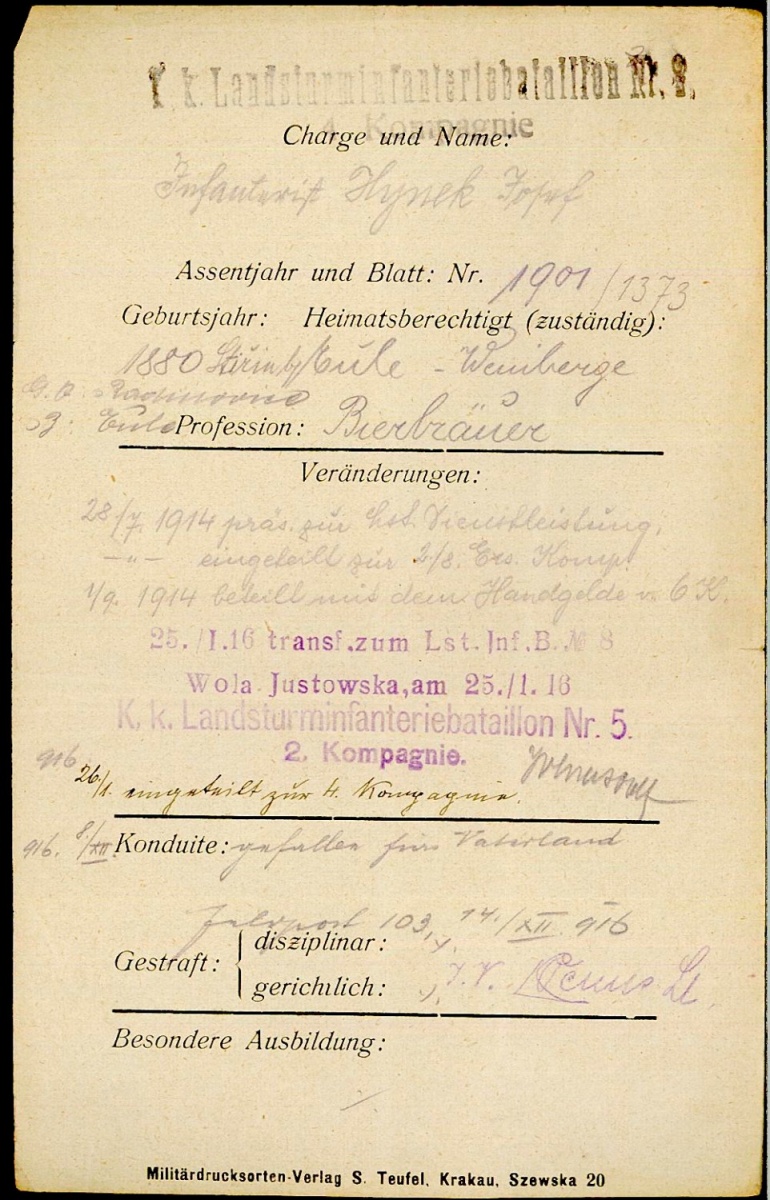 k. k. Landsturminfanteriebataillon Nr. 8.
4. Kompagnie
Charge und Name:
Infanterist Hynek Josef
Assentjahr und Blatt: Nr. 1901/1373
Geburtsjahr: Heimatsberechtigt (zuständig):
1880 Eule - Weinberge
G. O. Radinovic
B: Eule Profession: Bierbräuer
Veränderungen:
28/7. 1914 präs. zur Lst. Dienstleistung,
—"— eingeteilt zur 2/8. Ers. Komp.
1/9. 1914 beteilt mit dem Handgelde v. 6 K.
25./I.16 transf.zum Lst.Inf.B.№ 8
Wola Justowska,am 25./I.16
K. k. Landsturminfanteriebataillon Nr. 5.
2. Kompagnie.
916 26./1. eingeteilt zur 4. Kompagnie.
916. 8/XII. Konduite: gefallen fürs Vaterland
Feldpost 103, 14./XII. 916
Gestraft: disziplinar:
gerichtlich: I. V. Lt.
Besondere Ausbildung:
Militärdrucksorten-Verlag S. Teufel, Krakau, Szewska 20